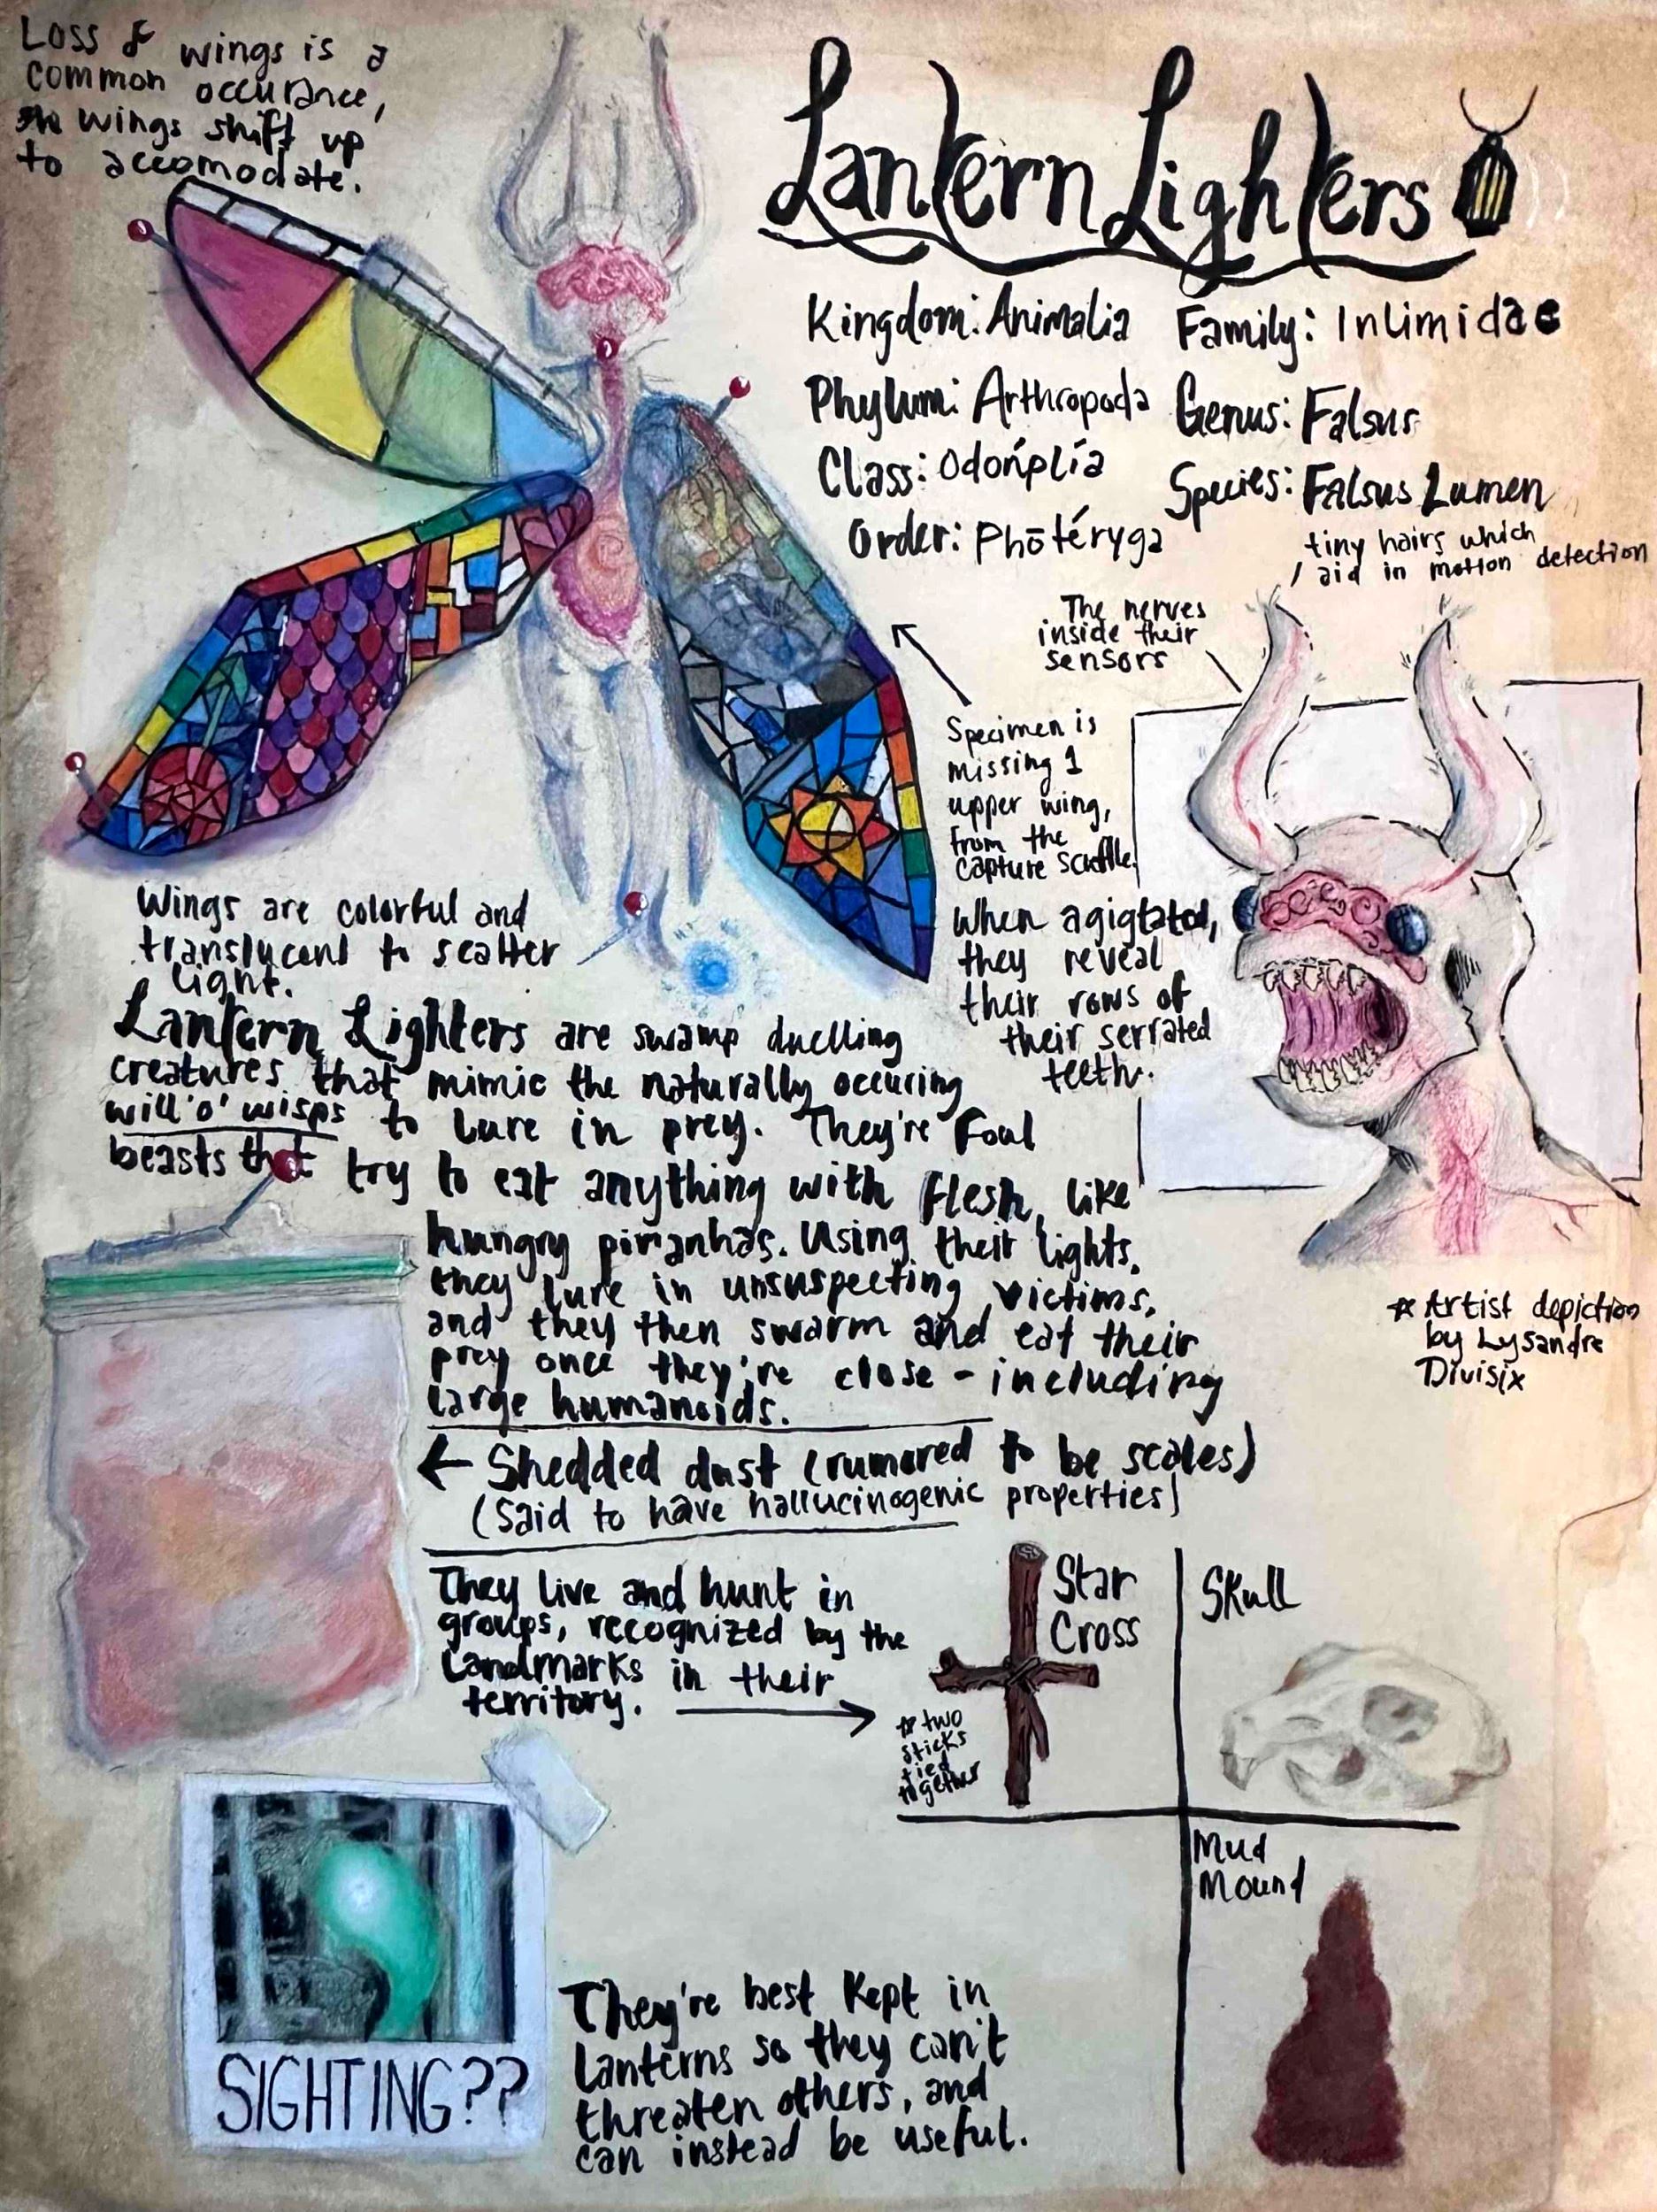 Loss of wings is a
common occurance,
wings shift up
to accomodate.
Lantern Lighters
Kingdom: Animalia
Phylum: Arthropoda
Class: Odonṕlía
Order: Phōtéryga
Family: Inlimidae
Genus: Falsus
Species: Falsus Lumen
tiny hairs which
aid in motion detection
The nerves
inside their
sensors
Specimen is
missing 1
upper wing,
from the
capture scuffle.
When agigtated,
they reveal
their rows of
their serrated
teeth.
Wings are colorful and
translucent to scatter
light.
Lantern Lighters are swamp duelling
creatures that mimic the naturally occuring
will'o'wisps to lure in prey. They're foul
beasts that try to eat anything with flesh, like
hungry pirranhas. Using their lights,
they lure in unsuspecting victims,
and they then swarm and eat their
prey once they're close - including
large humanoids.
* Artist depiction
by Lysandre
Divisix
← Shedded dust (rumored to be scales)
(Said to have hallucinogenic properties)
They live and hunt in
groups, recognized by the
landmarks in their
territory.
Star
Cross
* two
sticks
tied
together
Skull
Mud
Mound
SIGHTING??
They're best kept in
lanterns so they can't
threaten others, and
can instead be useful.